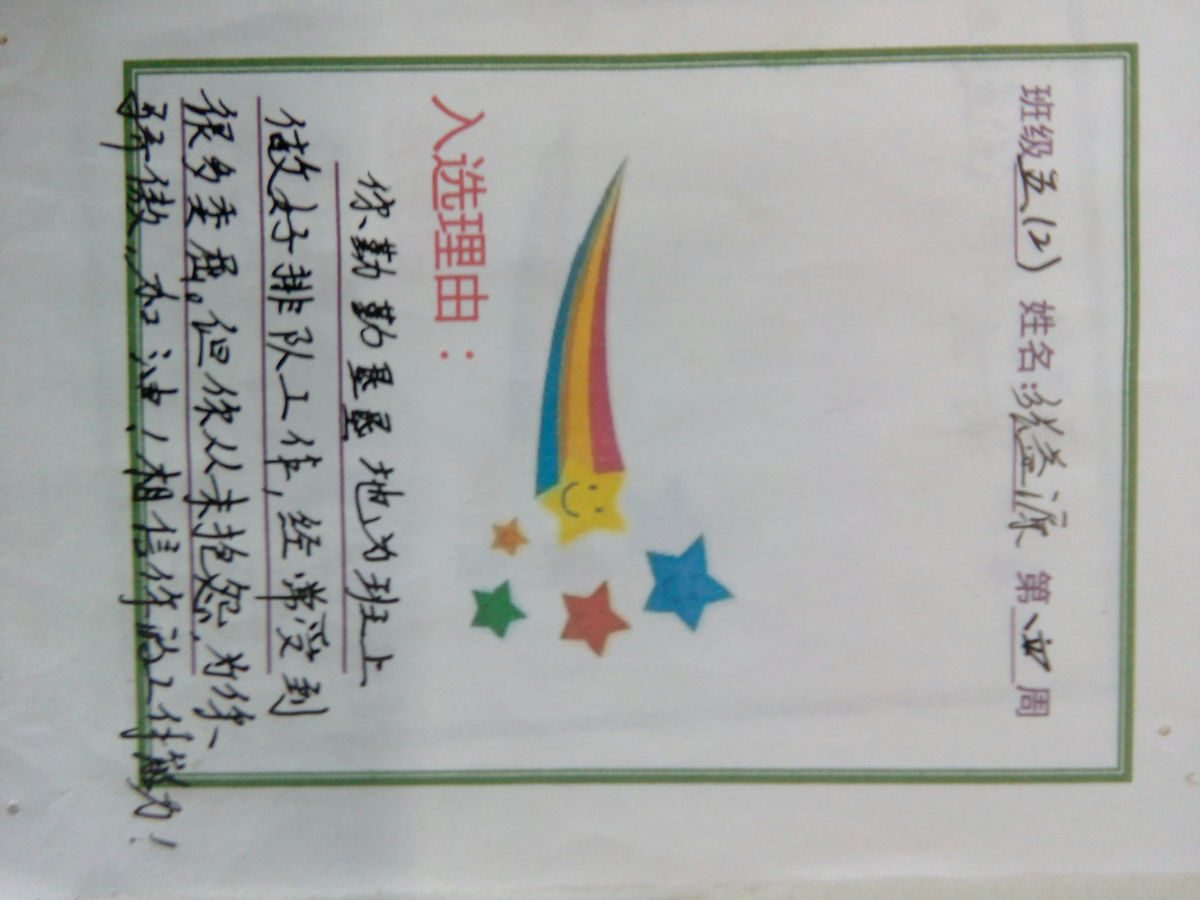 班级五(2) 姓名:张益源 第 周
入选理由:
你勤勤垦垦地为班上
做好排队工作,经常受到
很多委屈。但你从未抱怨,为你
骄傲,加油!相信你的工作能力!